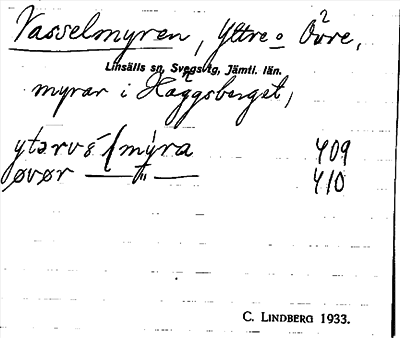 Vasselmyren, Yttre o Övre,
Linsälls sn, Svegs vtg, Jämtl. län.
myrar i Häggsberget,
409
øvør — " — 410
C. LINDBERG 1933.